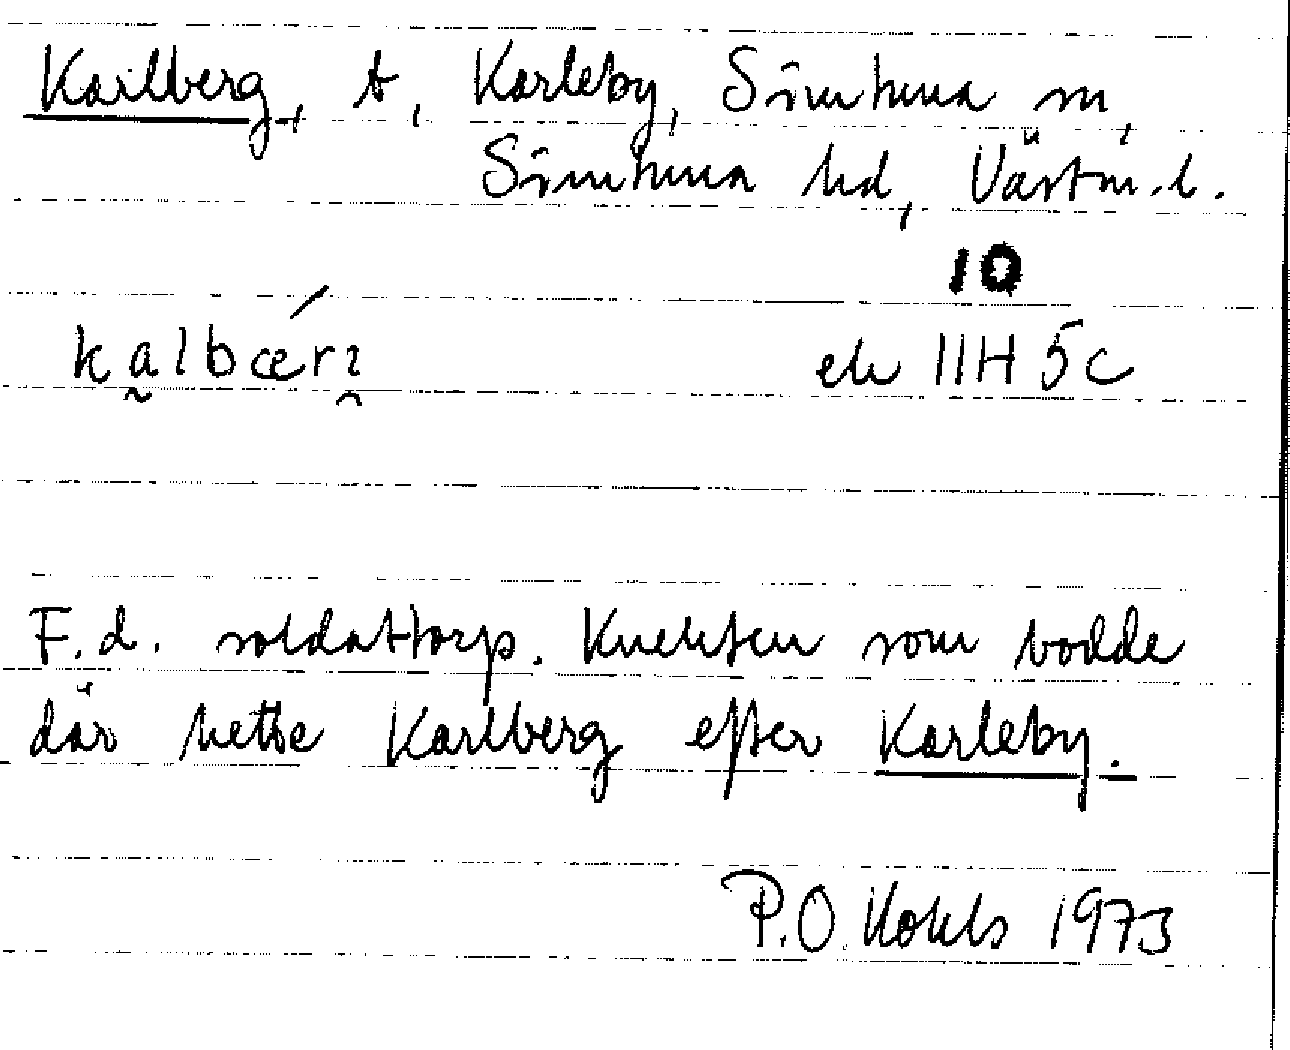 Karlberg, t, Karleby, Simtuna sn,
Simtuna hd, Västm.l.
10
ek 11H 5c
F.d. soldattorp. Knekten som bodde
där hette Karlberg efter Karleby.
P.O. Kohls 1973